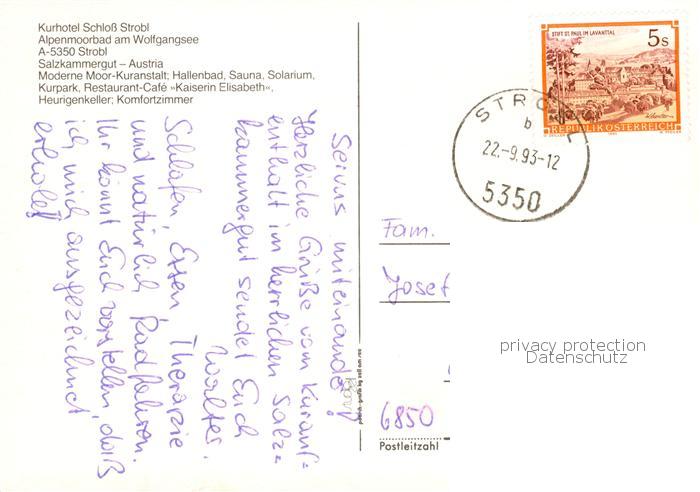 Kurhotel Schloß Strobl
Alpenmoorbad am Wolfgangsee
A-5350 Strobl
Salzkammergut – Austria
Moderne Moor-Kuranstalt; Hallenbad, Sauna, Solarium,
Kurpark, Restaurant-Café »Kaiserin Elisabeth«,
Heurigenkeller; Komfortzimmer
Servus miteinander!
Herzliche Grüße vom Kurauf=
enthalt im herrlichen Salz=
kammergut sendet Euch
Walter.
Schlafen, Essen, Therapie
und natürlich Radfahren.
Ihr könnt Euch vorstellen, daß
ich mich ausgezeichnet
erhole!
STIFT ST. PAUL IM LAVANTTAL
5 s
REPUBLIK ÖSTERREICH
STROBL
b
22.-9.93-12
5350
Fam.
Josef
privacy protection
Datenschutz
6850
Postleitzahl